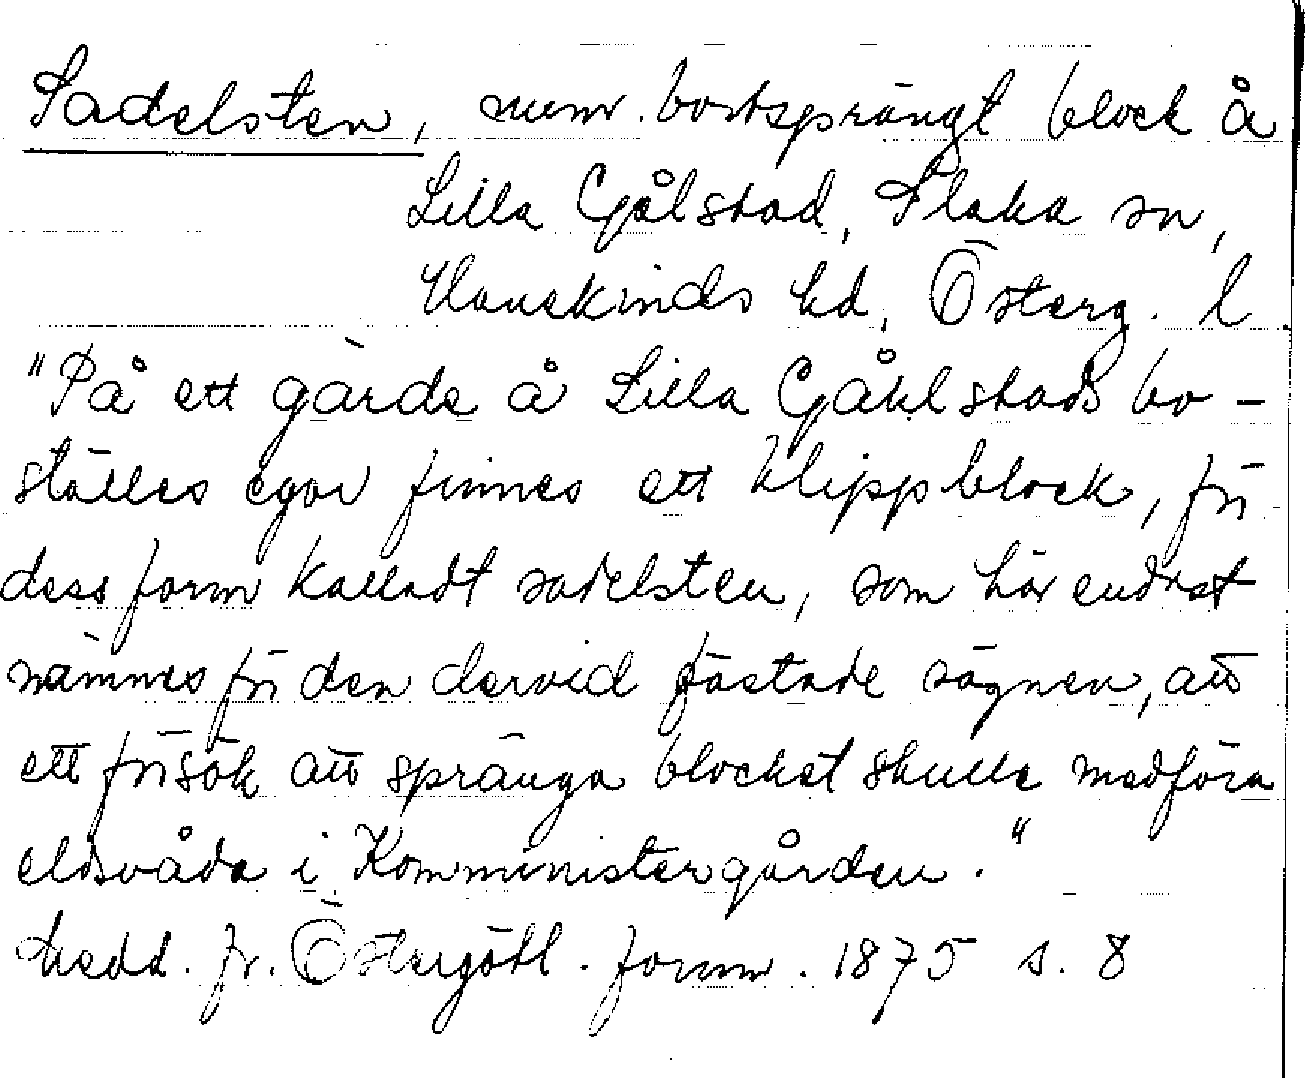 Sadelsten, numr. bortsprängt block å
Lilla Gålstad, Slaka sn,
Hanekinds hd, Österg. l
"På ett gärde å Lilla Gåhlstads bo-
ställes egor finnes ett klippblock, för
dess form kalladt sadelsten, som här endast
nämnes för den dervid fästade sägnen, att
ett försök att spränga blocket skulle medföra
eldsvåda i Komministergården."
Medd. fr. Östergötl. fornm. 1875 s. 8